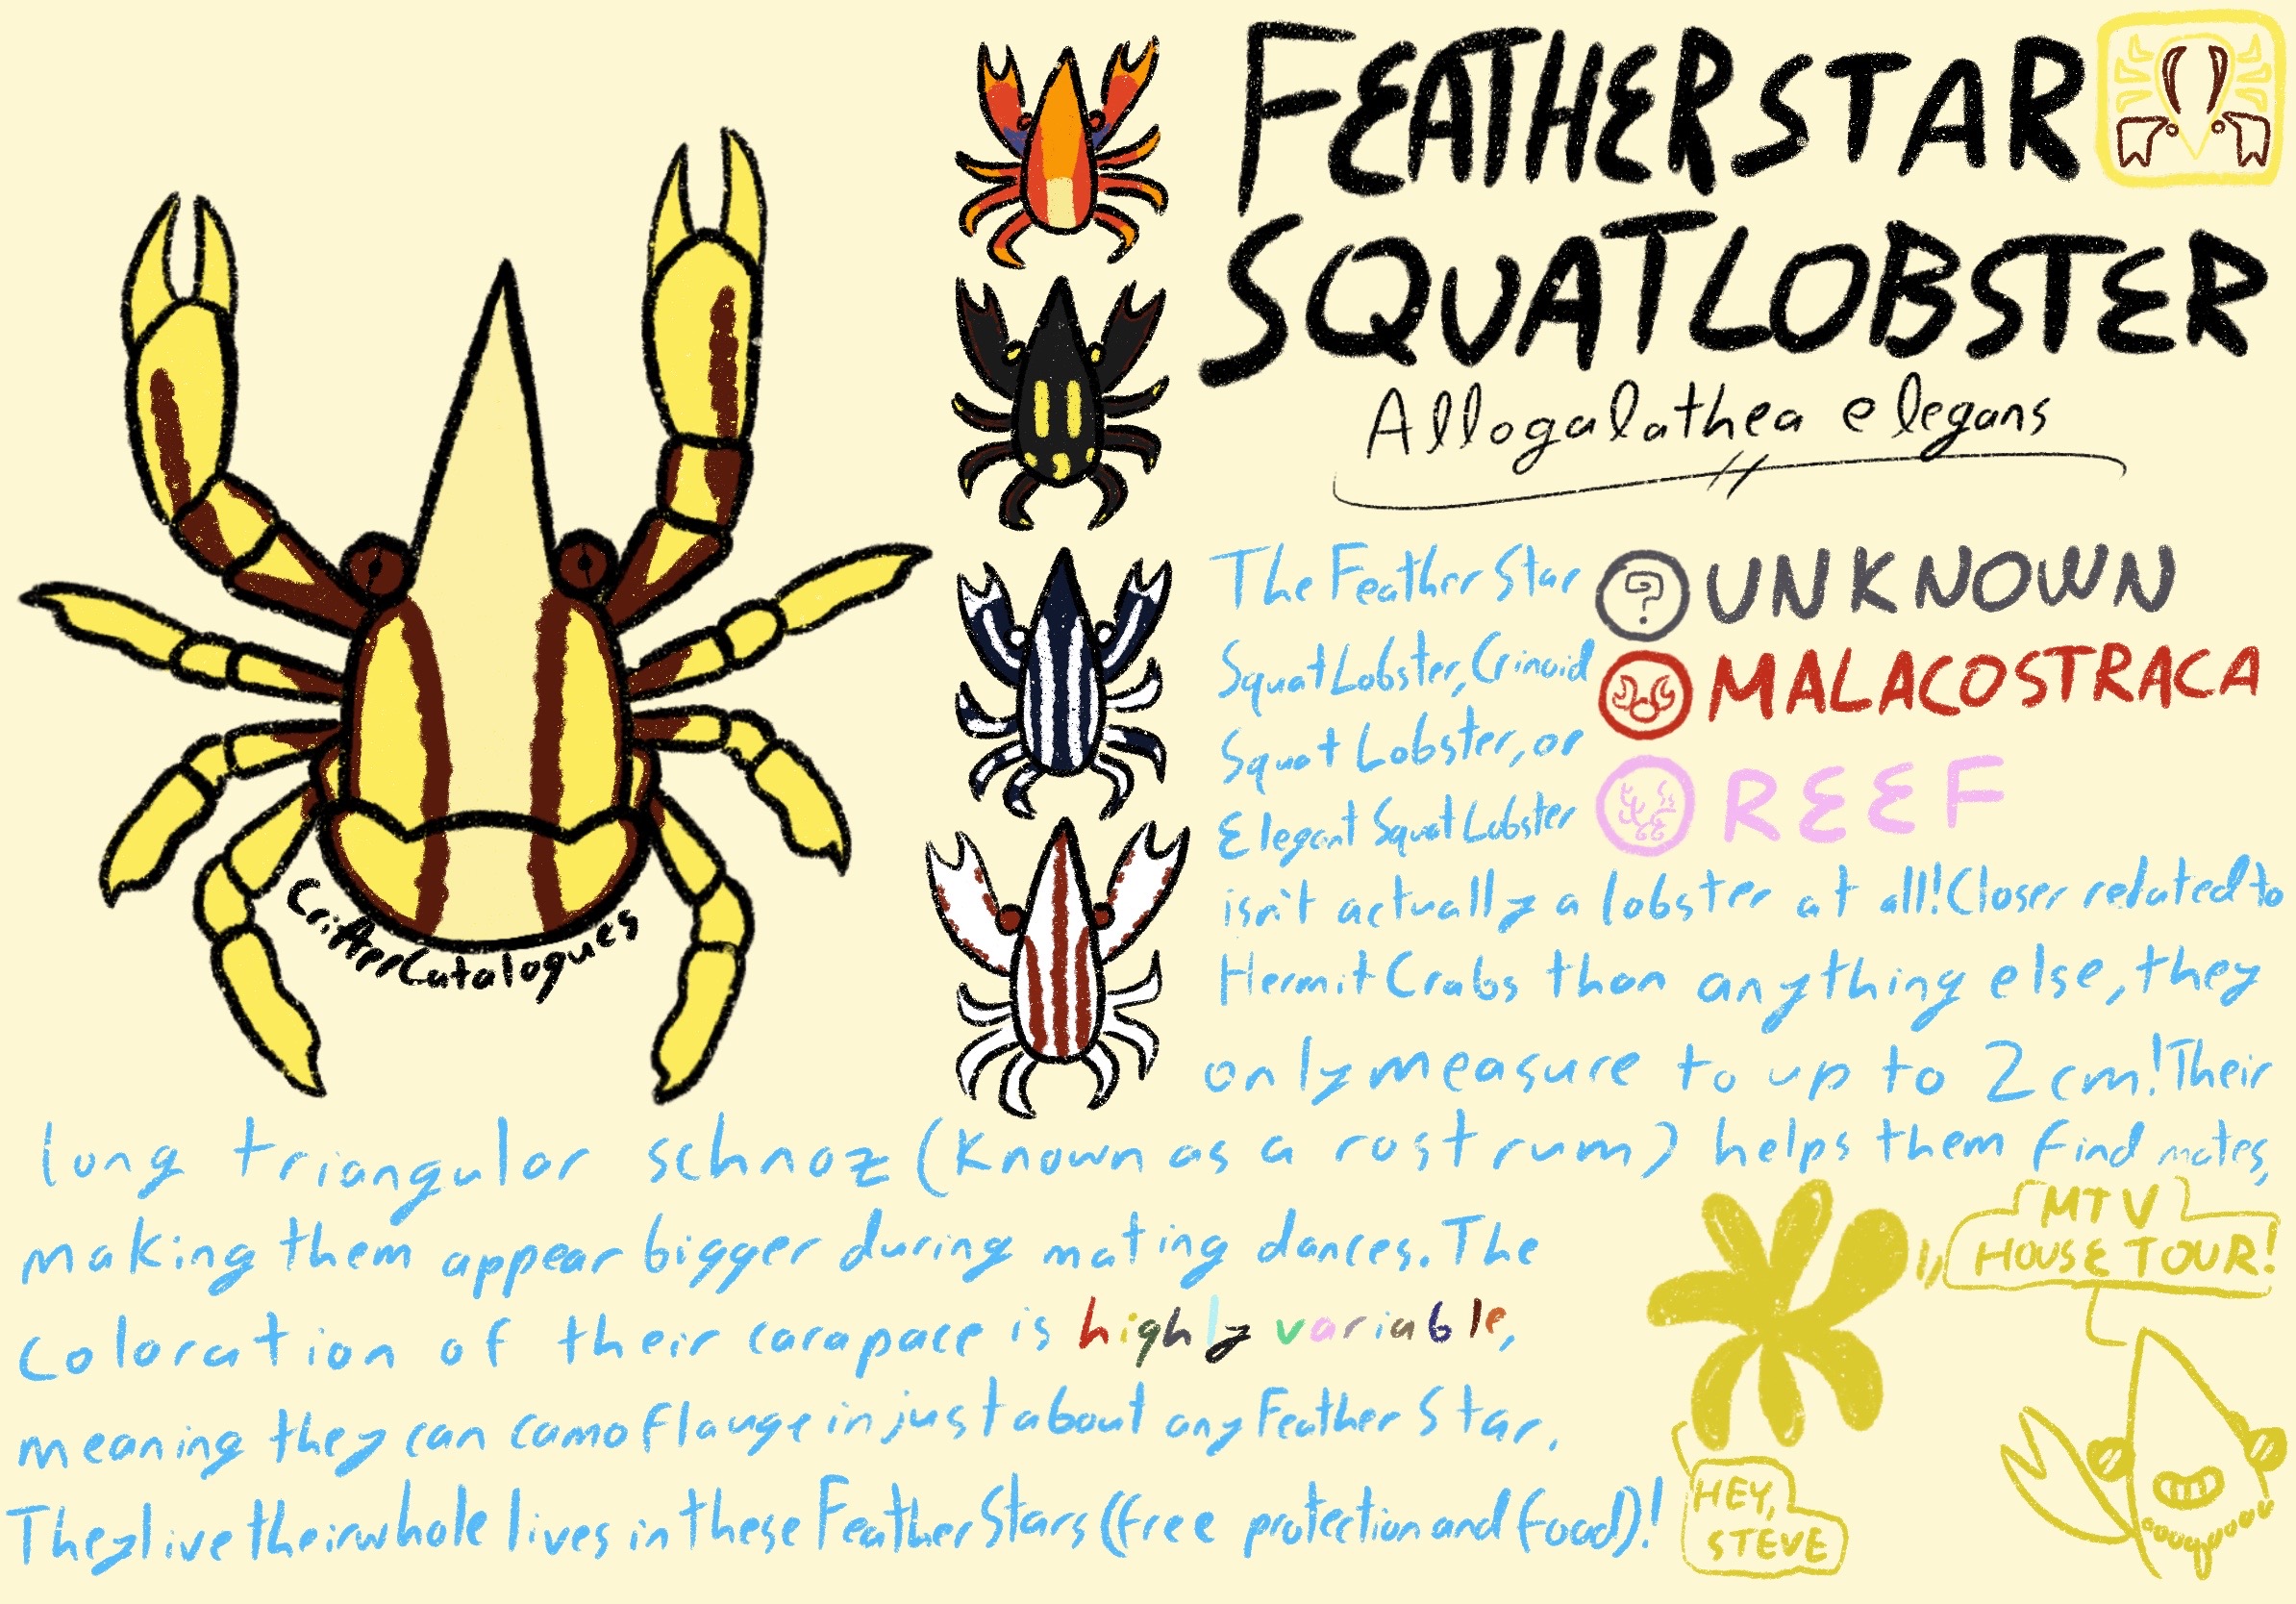 FEATHER STAR
SQUAT LOBSTER
Allogalathea elegans
UNKNOWN
MALACOSTRACA
REEF
The Feather Star
Squat Lobster, Crinoid
Squat Lobster, or
Elegant Squat Lobster
isn't actually a lobster at all! Closer related to
Hermit Crabs than anything else, they
only measure to up to 2cm! Their
long triangular schnoz (known as a rostrum) helps them find mates,
making them appear bigger during mating dances. The
Coloration of their carapace is highly variable,
meaning they can camoflauge in just about any Feather Star.
They live their whole lives in these Feather Stars (free protection and food)!
CritterCatalogues
MTV
HOUSE TOUR!
HEY,
STEVE